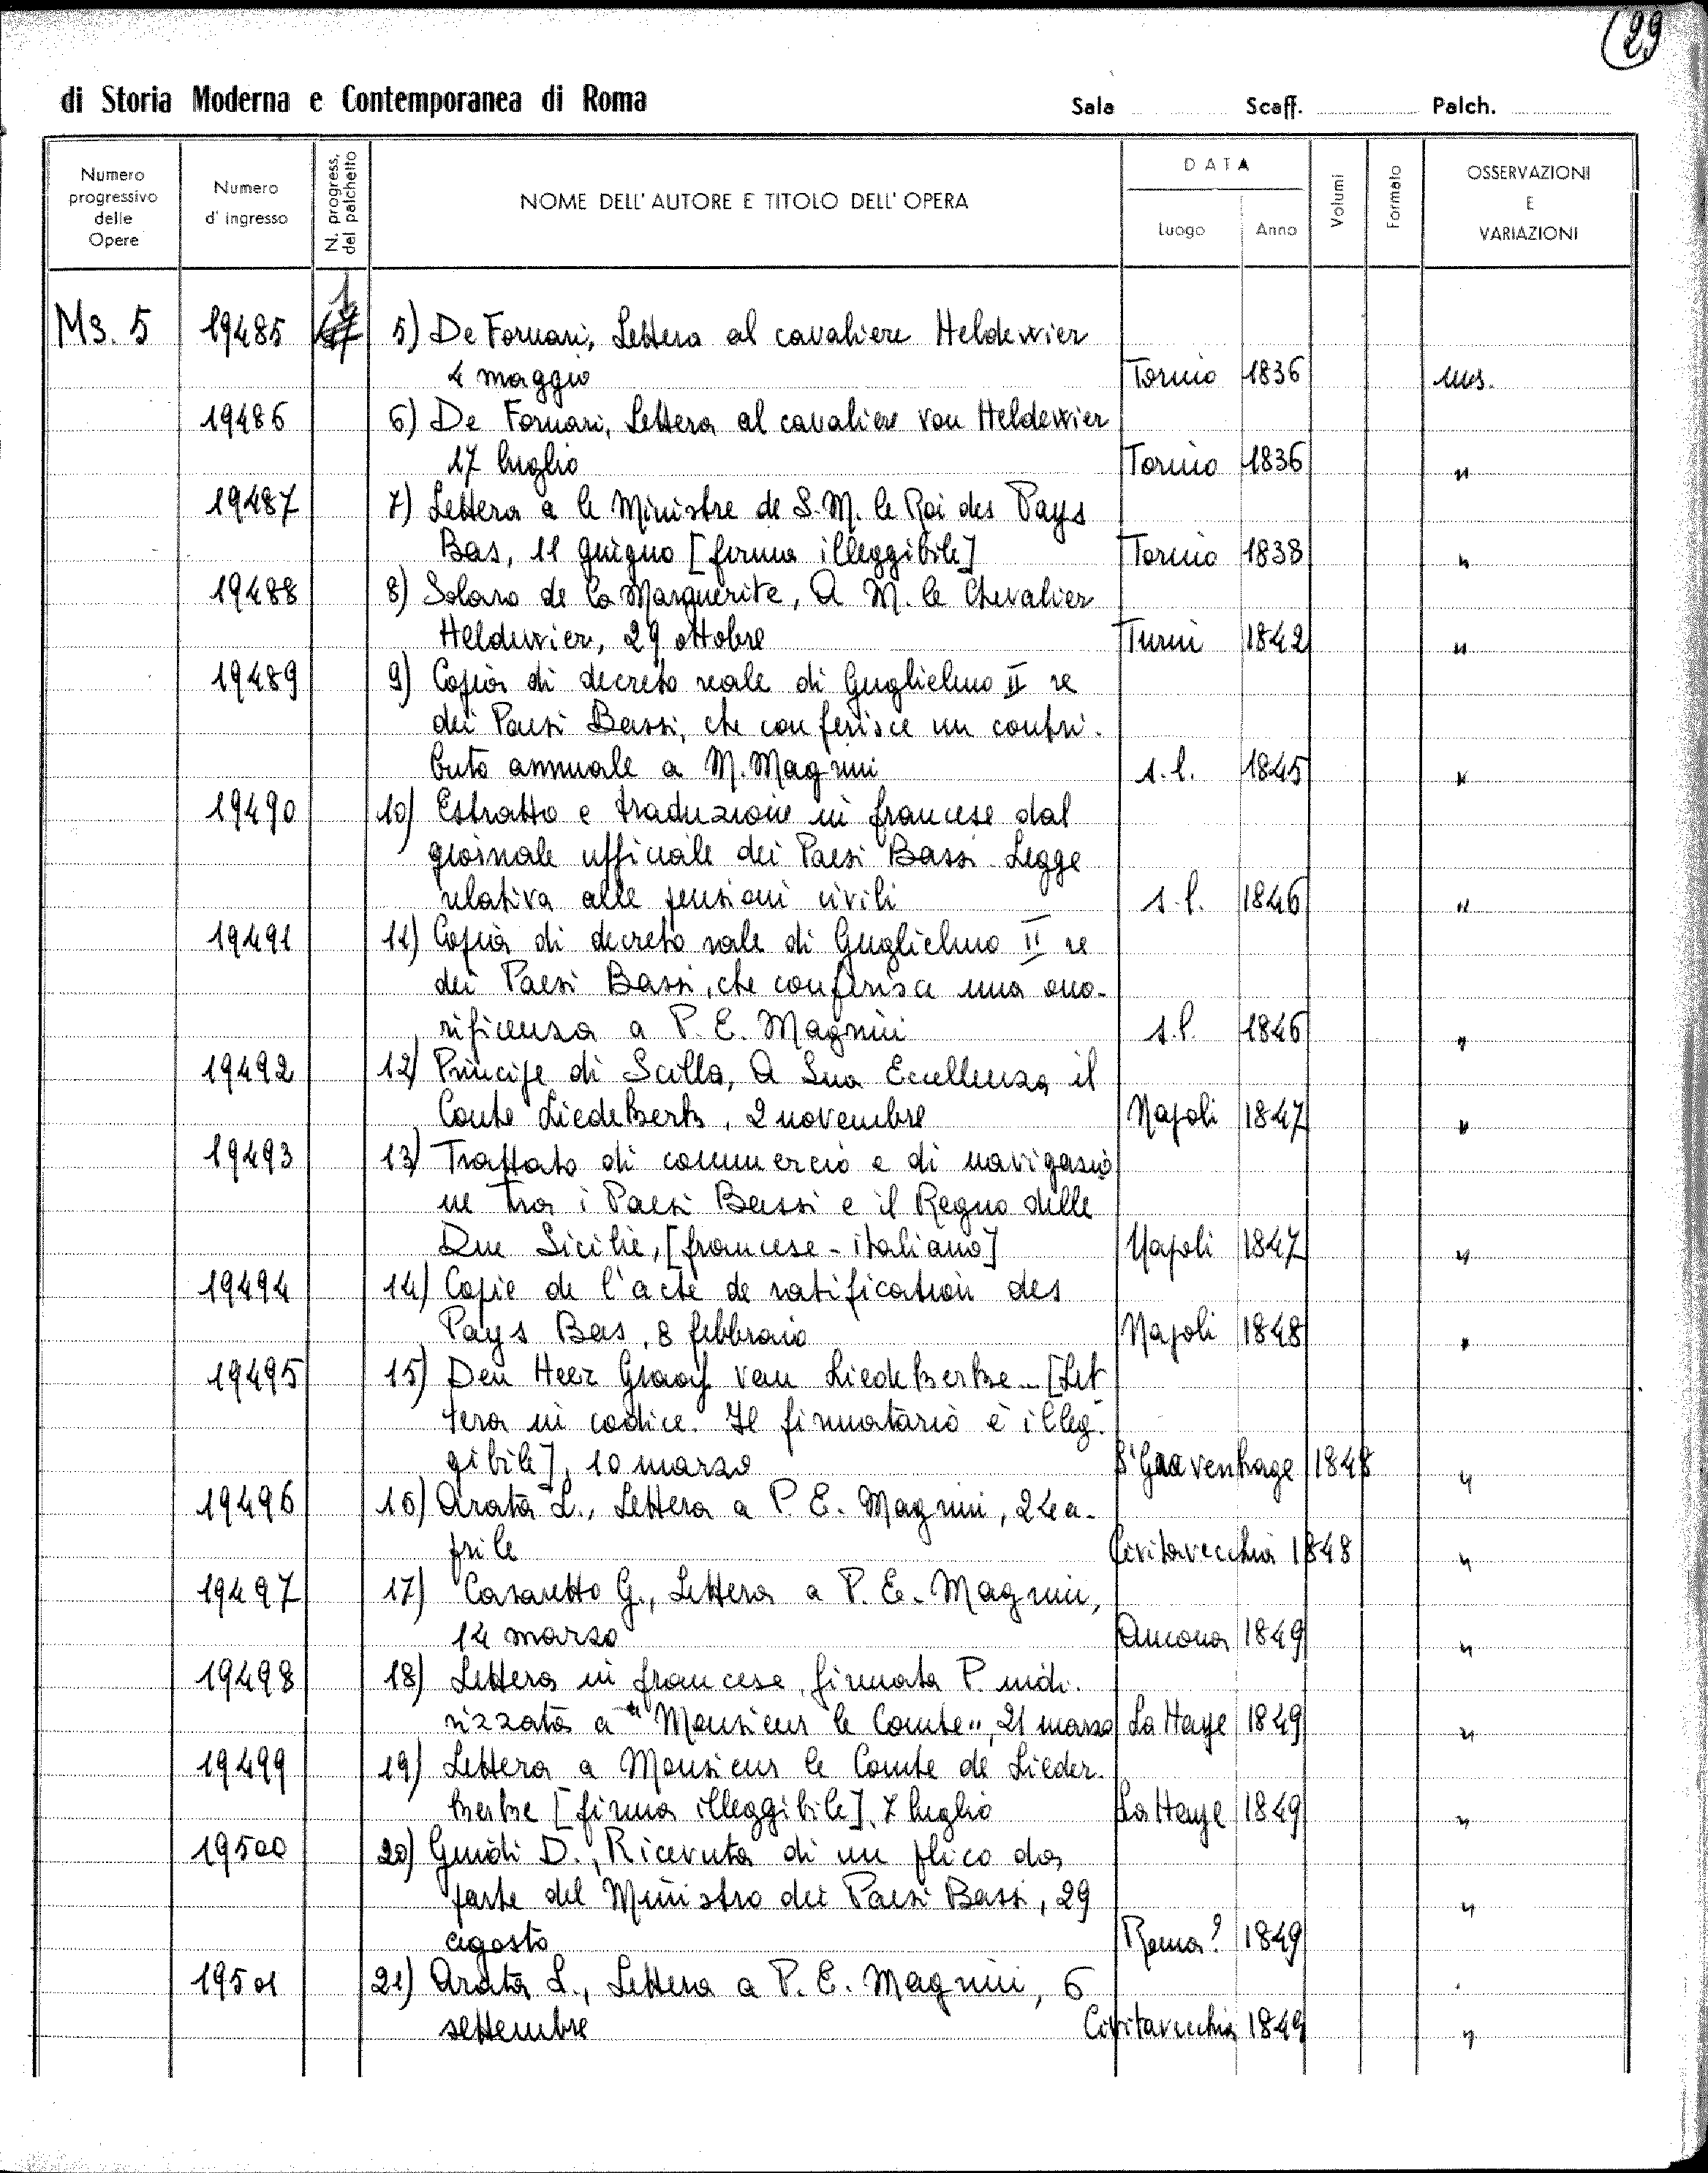 29
di Storia Moderna e Contemporanea di Roma Sala Scaff. Palch.
Numero progressivo delle Opere
Numero d' ingresso
N. progress. del palchetto
NOME DELL' AUTORE E TITOLO DELL' OPERA
DATA
Luogo Anno
Volumi
Formato
OSSERVAZIONI E VARIAZIONI
Ms. 5 19485 1 5) De Fornari, Lettera al cavaliere Heldewier
4 maggio Torino 1836 ms.
19486 6) De Fornari, Lettera al cavaliere von Heldewier
17 luglio Torino 1836 "
19487 7) Lettera a le Ministre de S. M. le Roi des Pays
Bas, 11 giugno [firma illeggibile] Torino 1838 "
19488 8) Solaro de la Marguerite, A M. le Chevalier
Heldewier, 29 ottobre Turin 1842 "
19489 9) Copia di decreto reale di Guglielmo II re
dei Paesi Bassi, che conferisce un contri-
buto annuale a M. Magnini s.l. 1845 "
19490 10) Estratto e traduzione in francese dal
giornale ufficiale dei Paesi Bassi. Legge
relativa alle pensioni civili s.l. 1846 "
19491 11) Copia di decreto reale di Guglielmo II re
dei Paesi Bassi, che conferisce una ono-
rificenza a P. E. Magnini s.l. 1846 "
19492 12) Principe di Scilla, A Sua Eccellenza il
Conte Liedekerke, 2 novembre Napoli 1847 "
19493 13) Trattato di commercio e di navigazio
ne tra i Paesi Bassi e il Regno delle
Due Sicilie, [francese - italiano] Napoli 1847 "
19494 14) Copie de l'acte de ratification des
Pays Bas, 8 febbraio Napoli 1848 "
19495 15) Den Heer Graaf van Liedekerke... [Let
tera in codice. Il firmatario è illeg-
gibile], 10 marzo S'Gravenhage 1848 "
19496 16) Arata L., Lettera a P. E. Magnini, 24 a-
prile Civitavecchia 1848 "
19497 17) Casaretto G., Lettera a P. E. Magnini,
14 marzo Ancona 1849 "
19498 18) Lettera in francese, firmata P. indi-
rizzata a "Monsieur le Comte", 21 marzo La Haye 1849 "
19499 19) Lettera a Monsieur le Comte de Lieder-
kerke [firma illeggibile], 7 luglio La Haye 1849 "
19500 20) Guidi D., Ricevuta di un plico da
parte del Ministro dei Paesi Bassi, 29 "
agosto Roma? 1849
19501 21) Arata L., Lettera a P. E. Magnini, 6
settembre Civitavecchia 1849 "